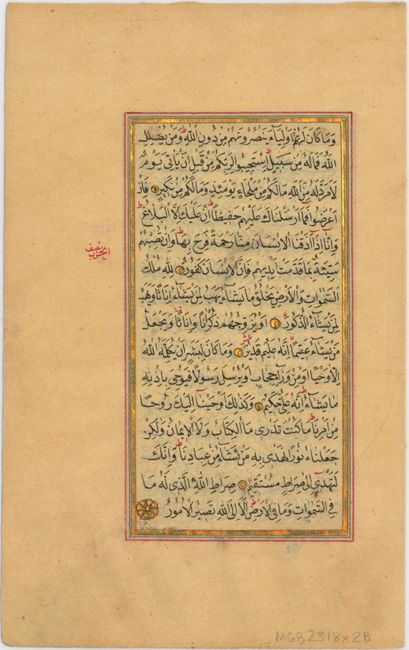 وَمَا كَانَ لَهُمْ مِنْ اَوْلِيَاءَ يَنْصُرُونَهُمْ مِنْ دُونِ اللهِ وَمَنْ يُضْلِلِ
اللهُ فَمَا لَهُ مِنْ سَبِيلٍ اِسْتَجِيبُوا لِرَبِّكُمْ مِنْ قَبْلِ اَنْ يَأْتِيَ يَوْمٌ
لَا مَرَدَّ لَهُ مِنَ اللهِ مَا لَكُمْ مِنْ مَلْجَاٍ يَوْمَئِذٍ وَمَا لَكُمْ مِنْ نَكِيرٍ فَاِنْ
اَعْرَضُوا فَمَا اَرْسَلْنَاكَ عَلَيْهِمْ حَفِيظًا اِنْ عَلَيْكَ اِلَّا الْبَلَاغُ
وَاِنَّا اِذَا اَذَقْنَا الْاِنْسَانَ مِنَّا رَحْمَةً فَرِحَ بِهَا وَاِنْ تُصِبْهُمْ
سَيِّئَةٌ بِمَا قَدَّمَتْ اَيْدِيهِمْ فَاِنَّ الْاِنْسَانَ كَفُورٌ لِلّٰهِ مُلْكُ
السَّمٰوَاتِ وَالْاَرْضِ يَخْلُقُ مَا يَشَاءُ يَهَبُ لِمَنْ يَشَاءُ اِنَاثًا وَيَهَبُ
لِمَنْ يَشَاءُ الذُّكُورَ اَوْ يُزَوِّجُهُمْ ذُكْرَانًا وَاِنَاثًا وَيَجْعَلُ
مَنْ يَشَاءُ عَقِيمًا اِنَّهُ عَلِيمٌ قَدِيرٌ وَمَا كَانَ لِبَشَرٍ اَنْ يُكَلِّمَهُ اللهُ
اِلَّا وَحْيًا اَوْ مِنْ وَرَاءِ حِجَابٍ اَوْ يُرْسِلَ رَسُولًا فَيُوحِيَ بِاِذْنِهِ
مَا يَشَاءُ اِنَّهُ عَلِيٌّ حَكِيمٌ وَكَذٰلِكَ اَوْحَيْنَا اِلَيْكَ رُوحًا
مِنْ اَمْرِنَا مَا كُنْتَ تَدْرِي مَا الْكِتَابُ وَلَا الْاِيمَانُ وَلٰكِنْ
جَعَلْنَاهُ نُورًا نَهْدِي بِهِ مَنْ نَشَاءُ مِنْ عِبَادِنَا وَاِنَّكَ
لَتَهْدِي اِلٰى صِرَاطٍ مُسْتَقِيمٍ صِرَاطِ اللهِ الَّذِي لَهُ مَا
فِي السَّمٰوَاتِ وَمَا فِي الْاَرْضِ اَلَا اِلَى اللهِ تَصِيرُ الْاُمُورُ
نصف
الحزب
MGB2318x2B